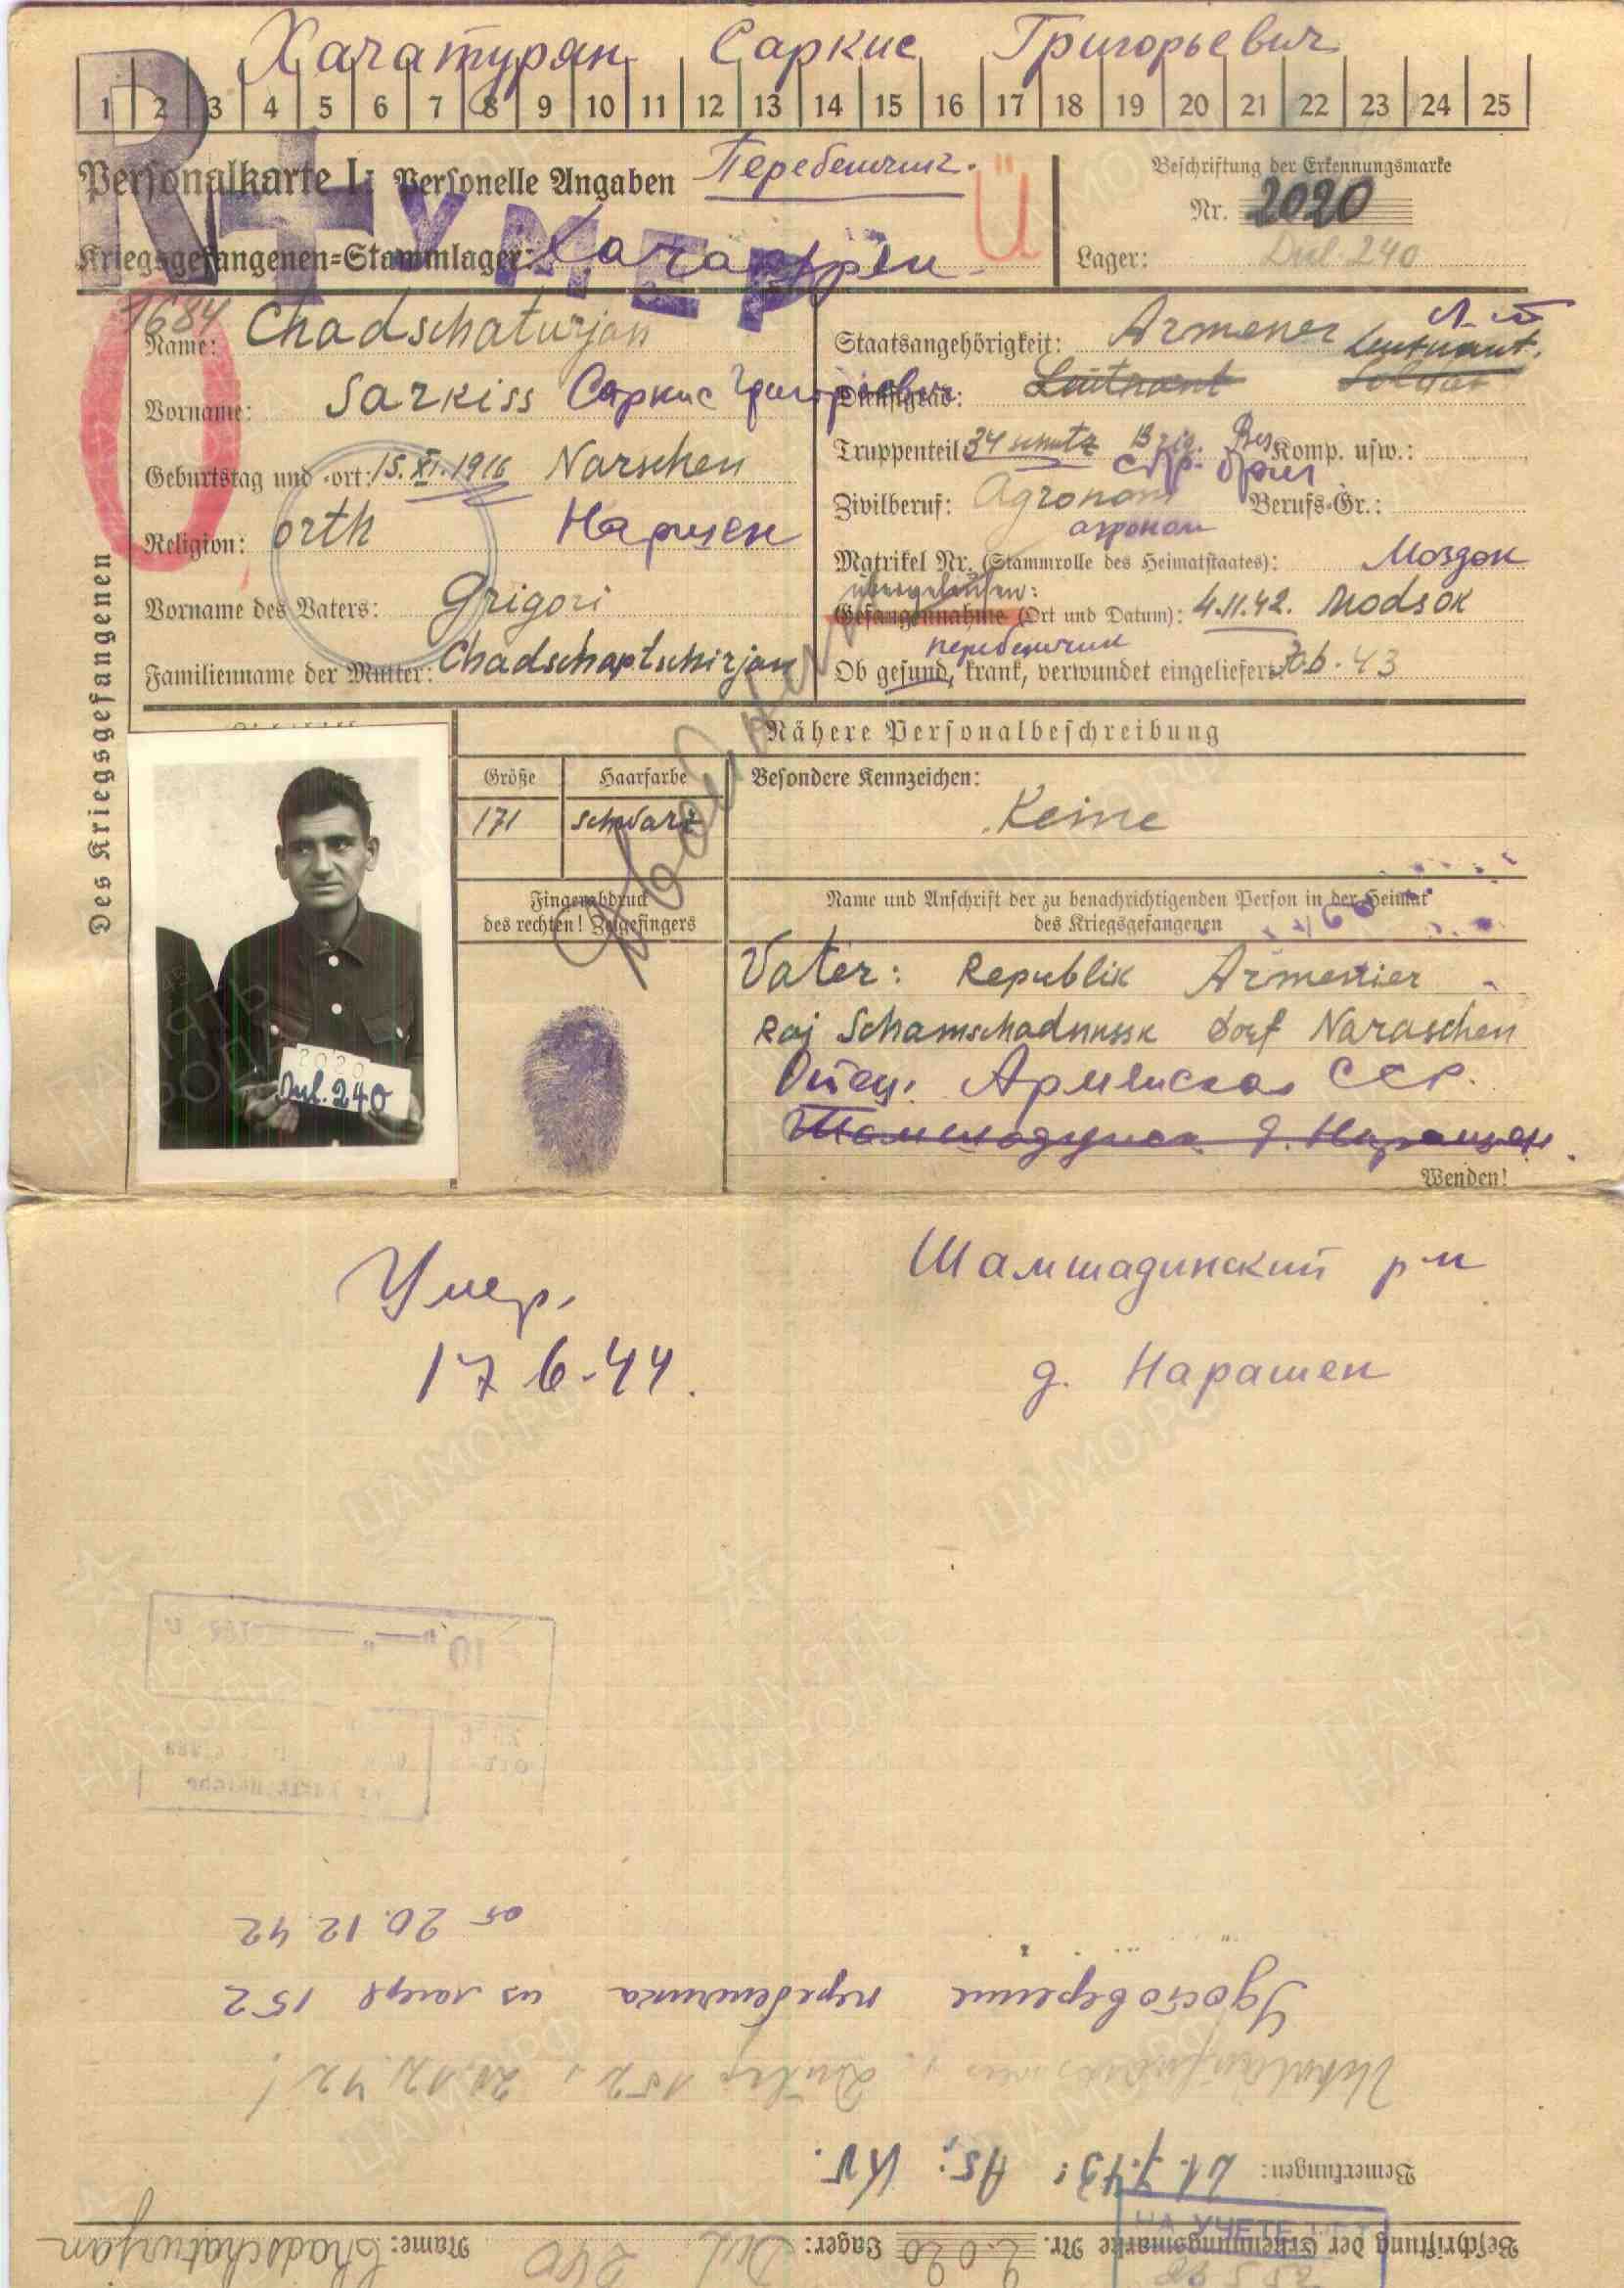 Хачатурян Саркис Григорьевич
1 2 3 4 5 6 7 8 9 10 11 12 13 14 15 16 17 18 19 20 21 22 23 24 25
Personalkarte I: Personelle Angaben
Перебежчик.
Ü
Beschriftung der Erkennungsmarke
Nr. 2020
Kriegsgefangenen-Stammlager:
УМЕР
Lager: Dul. 240
Des Kriegsgefangenen
1684
Name: Chadschaturjan
Vorname: Sarkiss Саркис Григорьевич
Geburtstag und -ort: 15.XI.1916 Narschen
Religion: orth Наршен
Vorname des Vaters: Grigori
Familienname der Mutter: Chadschaptschirjan
Staatsangehörigkeit: Armener
Leutnant.
Dienstgrad: Leutnant Soldat
Truppenteil 34 schutz Brig. Komp. usw.:
стр. бриг
Zivilberuf: Agronom Berufs-Gr.:
агроном
Matrikel Nr. (Stammrolle des Heimatstaates): Моздок
übergelaufen:
Gefangennahme (Ort und Datum): 4.11.42. Modsok
перебежчик
Ob gesund, krank, verwundet eingeliefert:
Nähere Personalbeschreibung
Größe Haarfarbe
171 schwarz
Besondere Kennzeichen:
Keine
Fingerabdruck
des rechten! Zeigefingers
Name und Anschrift der zu benachrichtigenden Person in der Heimat
des Kriegsgefangenen
2020
Dul. 240
Vater: Republik Armenier
Raj Schamschadinssk Dorf Naraschen
Отец: Армянская ССР.
Wenden!
Умер.
17 6.44.
Шамшадинский р-н
д. Нарашен
от 20.12.42
Удостоверение перебежчика из лагеря 152
Bemerkungen:
НА УЧЕТЕ
Beschriftung der Erkennungsmarke Nr. 2020 Lager: Dul 240 Name: Chadschaturjan
ЦАМО.РФ
ПАМЯТЬ
НАРОДА